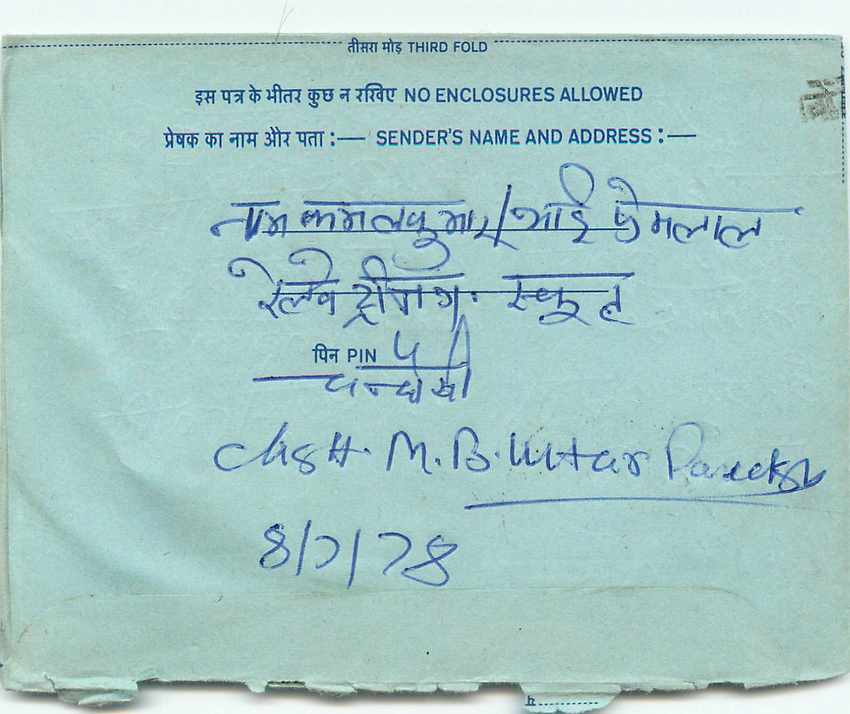 तीसरा मोड़ THIRD FOLD
इस पत्र के भीतर कुछ न रखिए NO ENCLOSURES ALLOWED
प्रेषक का नाम और पता :— SENDER'S NAME AND ADDRESS :—
नाम कमलकुमार/आई प्रेमलाल
रेल्वे ट्रीनींग स्कूल
पिन PIN
चन्दोसी
Distt. M.B. Uttar
8/7/78